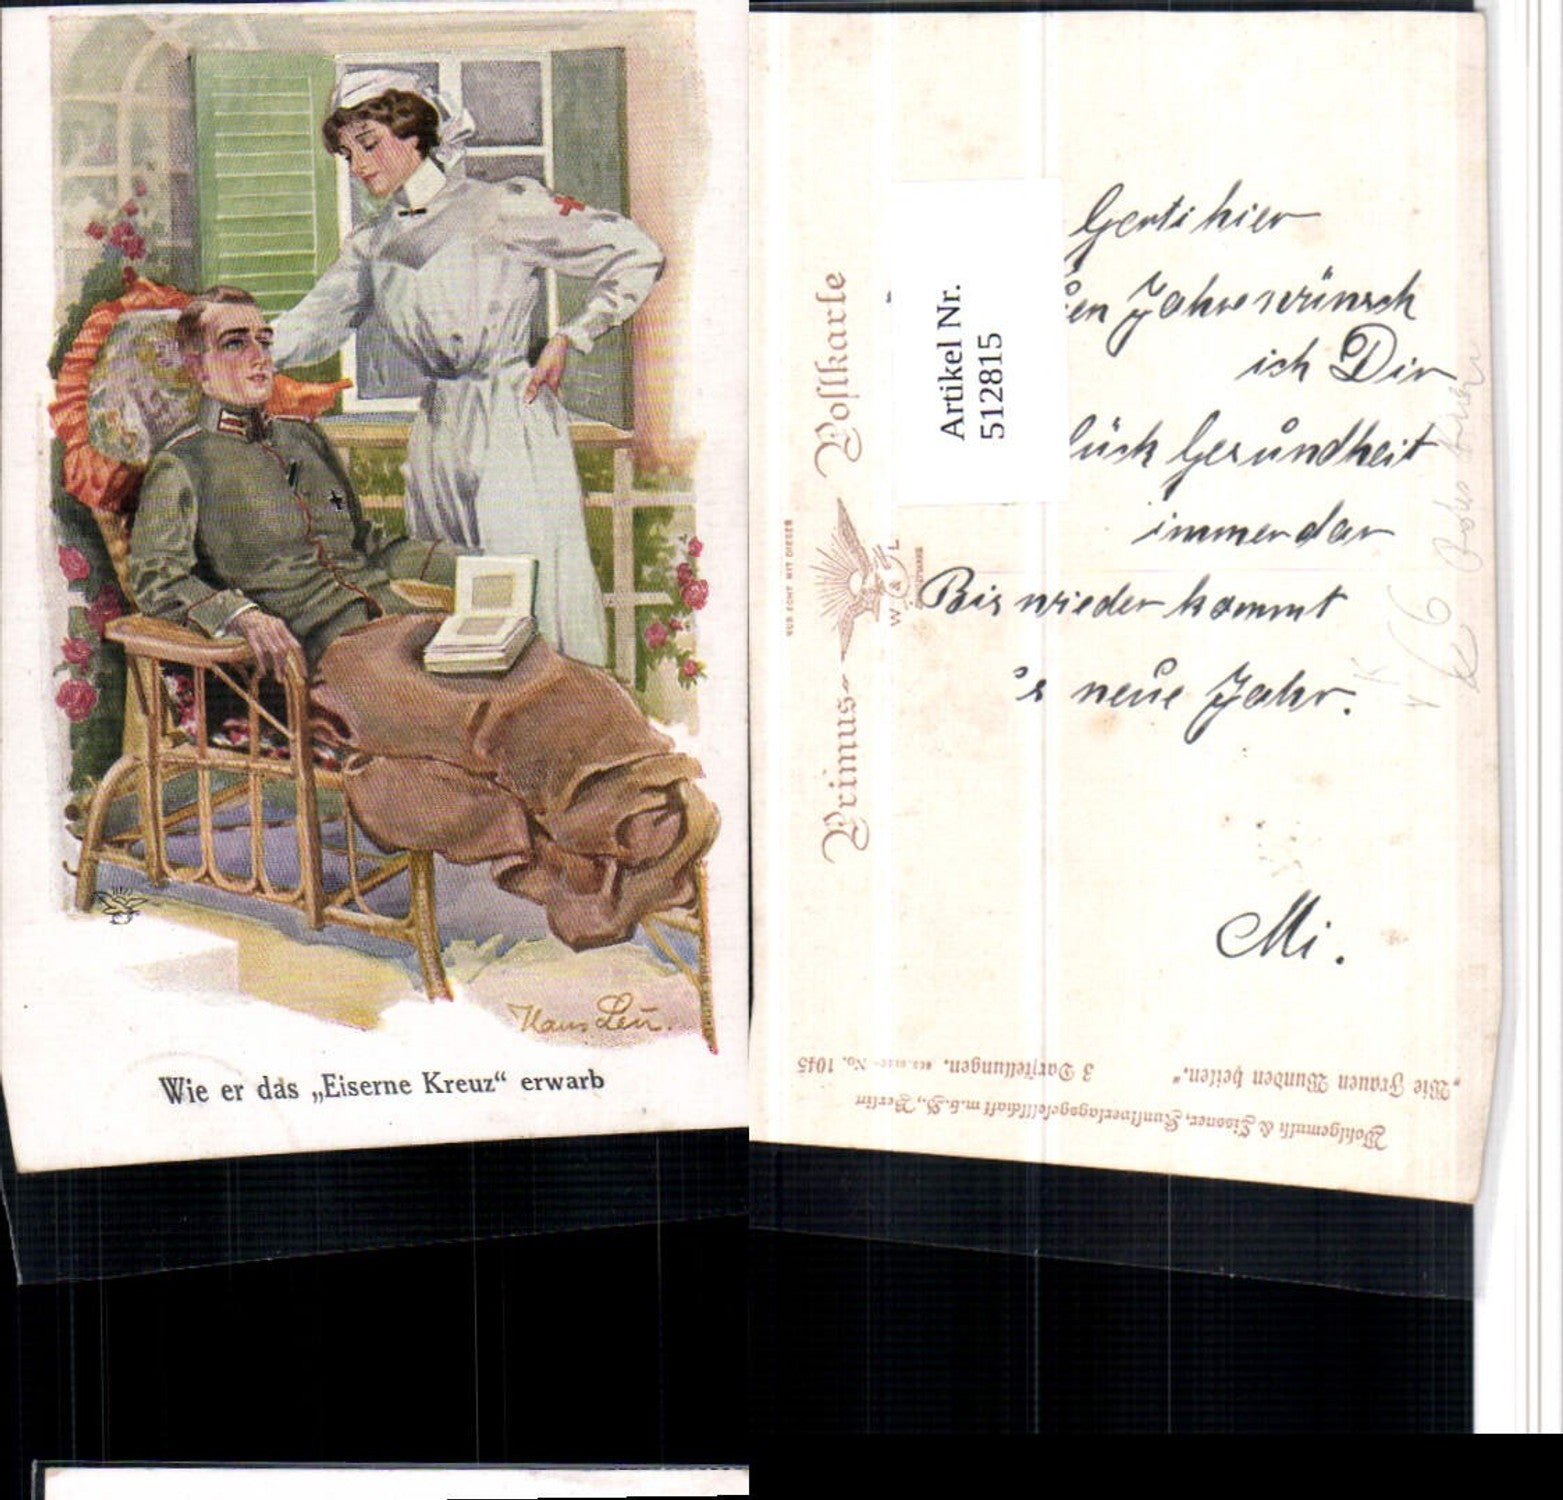 Hans Leu.
Wie er das „Eiserne Kreuz“ erwarb
Artikel Nr.
512815
Gerti hier
en Jahre wünsch
ich Dir
lück Gesundheit
immerdar
Bis wieder kommt
's neue Jahr.
Mi.
Primus-Postkarte
NUR ECHT MIT DIESER
W & L
„Wie Frauen Wunden heilen.“ 3 Darstellungen. No. 1045
Wohlgemuth & Lissner, Kunstverlagsgesellschaft m.b.H., Berlin